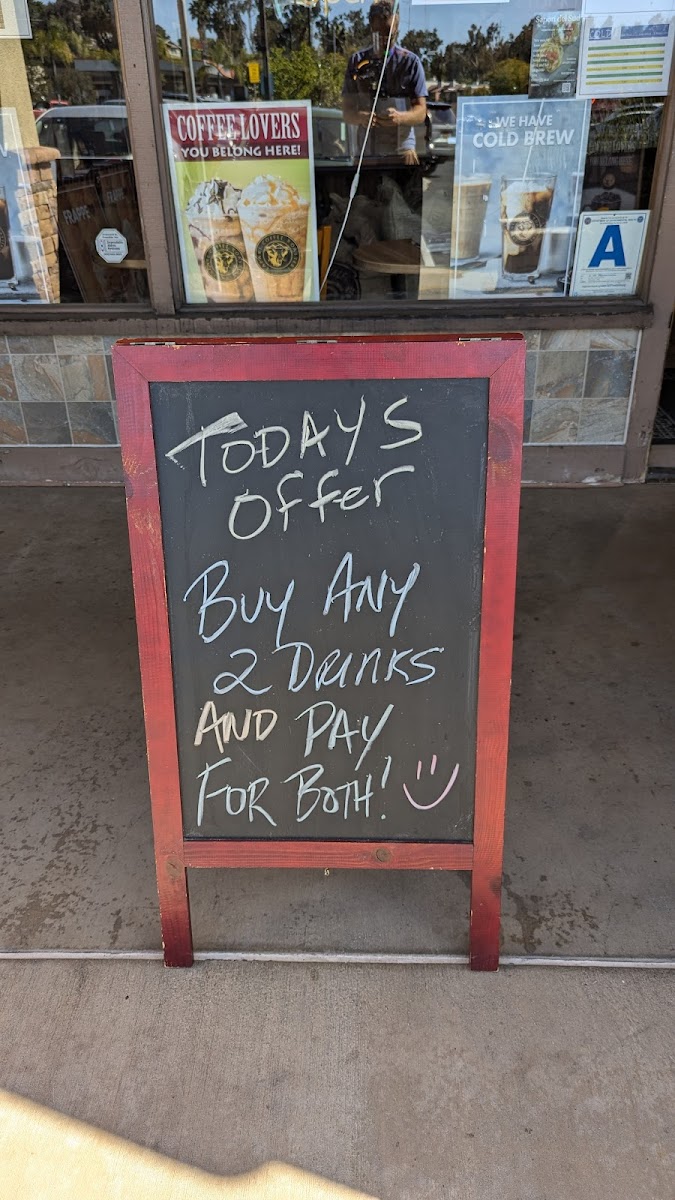 COFFEE LOVERS
YOU BELONG HERE!
WE HAVE
COLD BREW
FRAPPE
A
TODAYS
OFFER
BUY ANY
2 DRINKS
AND PAY
FOR BOTH!